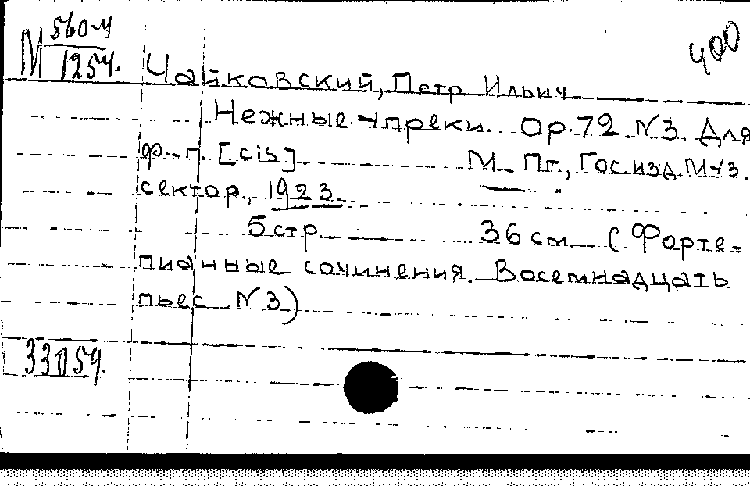 М 560-4
1254.
400
Чайковский, Петр Ильич
Нежные упреки. Op. 72 N 3. Для
ф.-п. [cis] М.-Пг., Гос. изд. Муз.
сектор, 1923.
5 стр. 36 см. (Форте-
пианные сочинения. Восемнадцать
пьес N 3)